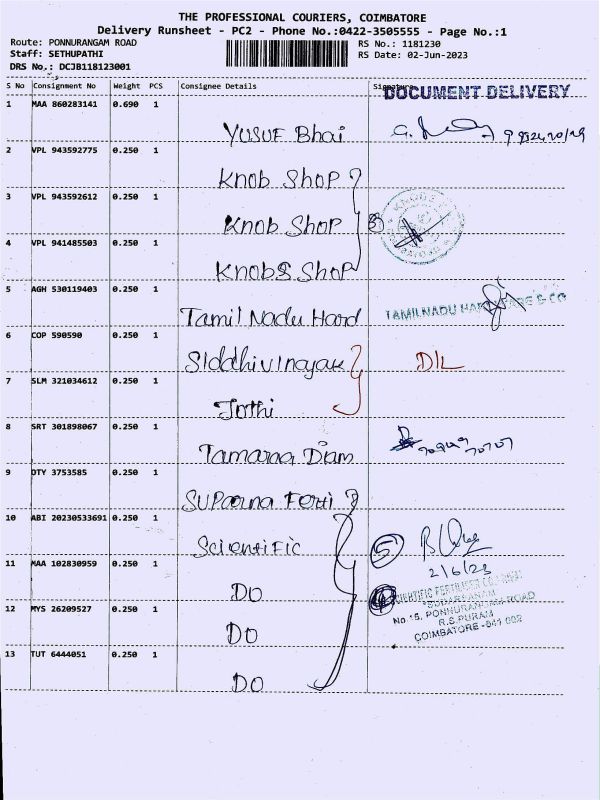 THE PROFESSIONAL COURIERS, COIMBATORE
Delivery Runsheet - PC2 - Phone No.:0422-3505555 - Page No.:1
Route: PONNURANGAM ROAD
Staff: SETHUPATHI
DRS No.: DCJB118123001
RS No.: 1181230
RS Date: 02-Jun-2023
S No Consignment No Weight PCS Consignee Details Signature
DOCUMENT DELIVERY
1 MAA 860283141 0.690 1
Yusuf Bhai
2 VPL 943592775 0.250 1
Knob Shop
3 VPL 943592612 0.250 1
Knob Shop 3
4 VPL 941485503 0.250 1
Knobs Shop
5 AGH 530119403 0.250 1
Tamil Nadu Hard TAMILNADU HARDWARE'S CO
6 COP 590590 0.250 1
Siddhivinayak D/L
7 SLM 321034612 0.250 1
Jothi
8 SRT 301898067 0.250 1
Tamarna Diam
9 DTY 3753585 0.250 1
Suparna Ferti
10 ABI 20230533691 0.250 1
Scientific 5
2/6/23
11 MAA 102830959 0.250 1
DO
SCIENTIFIC FERTILISER CO
"SUDARSANAM"
No.15, PONNURANGAM ROAD
R.S.PURAM
COIMBATORE-641 002
12 MYS 26209527 0.250 1
DO
13 TUT 6444051 0.250 1
DO